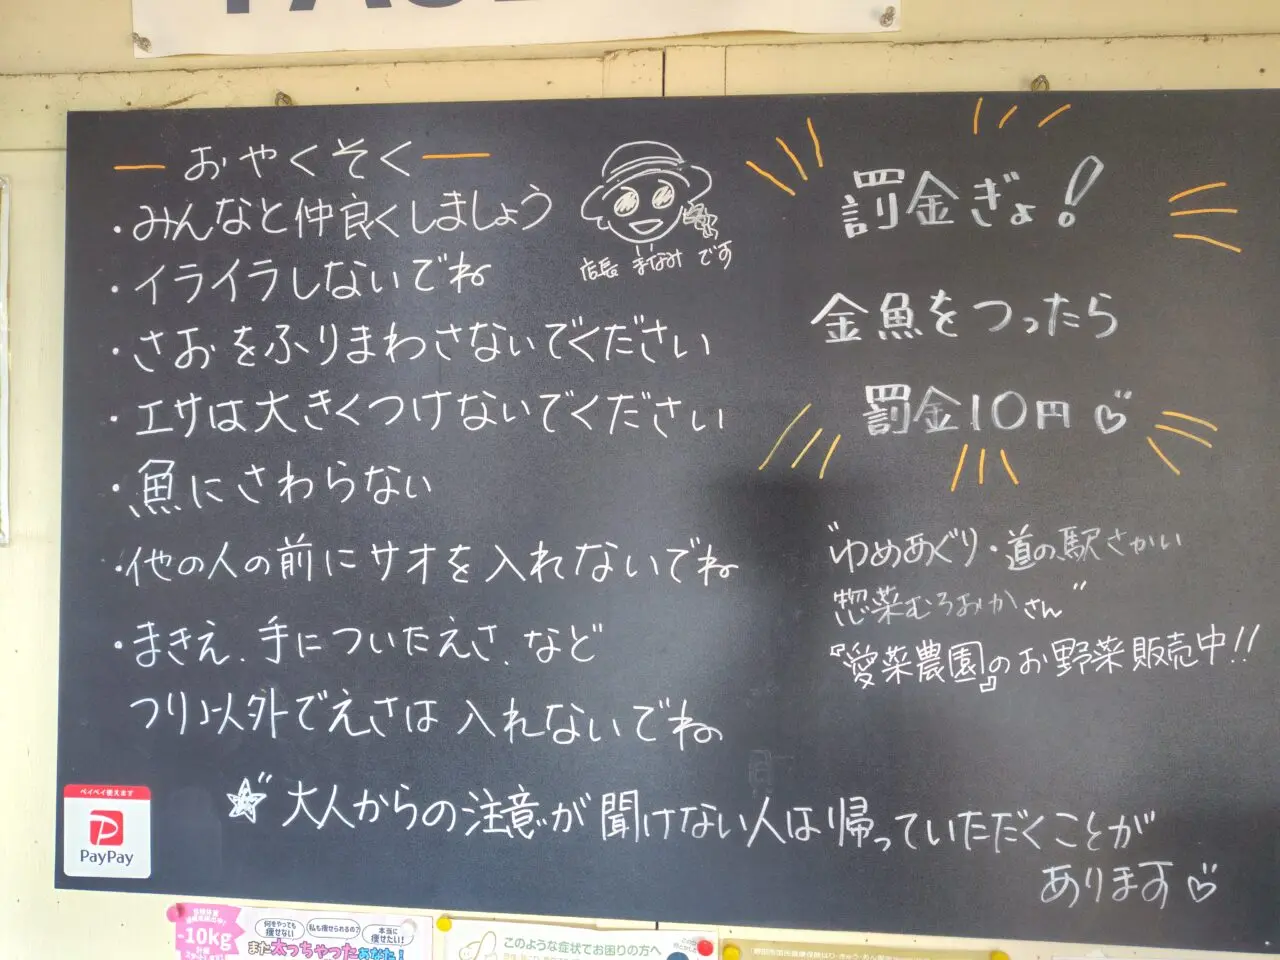 おやくそく
・みんなと仲良くしましょう
・イライラしないでね
・さおをふりまわさないでください
・エサは大きくつけないでください
・魚にさわらない
・他の人の前にサオを入れないでね
・まきえ、手についたえさ、など
つり以外でえさは入れないでね
店長 まなみ です
罰金ぎょ!
金魚をつったら
罰金10円♡
"ゆめあぐり・道の駅さかい
惣菜むろおかさん"
『愛菜農園』のお野菜販売中!!
☆"大人からの注意"が聞けない人は帰っていただくことが
あります♡
ペイペイ使えます
PayPay
-10kg
何をやっても
痩せない
私も痩せられるの?
本当に
痩せたい!
また太っちゃったあなた!
このような症状でお困りの方へ